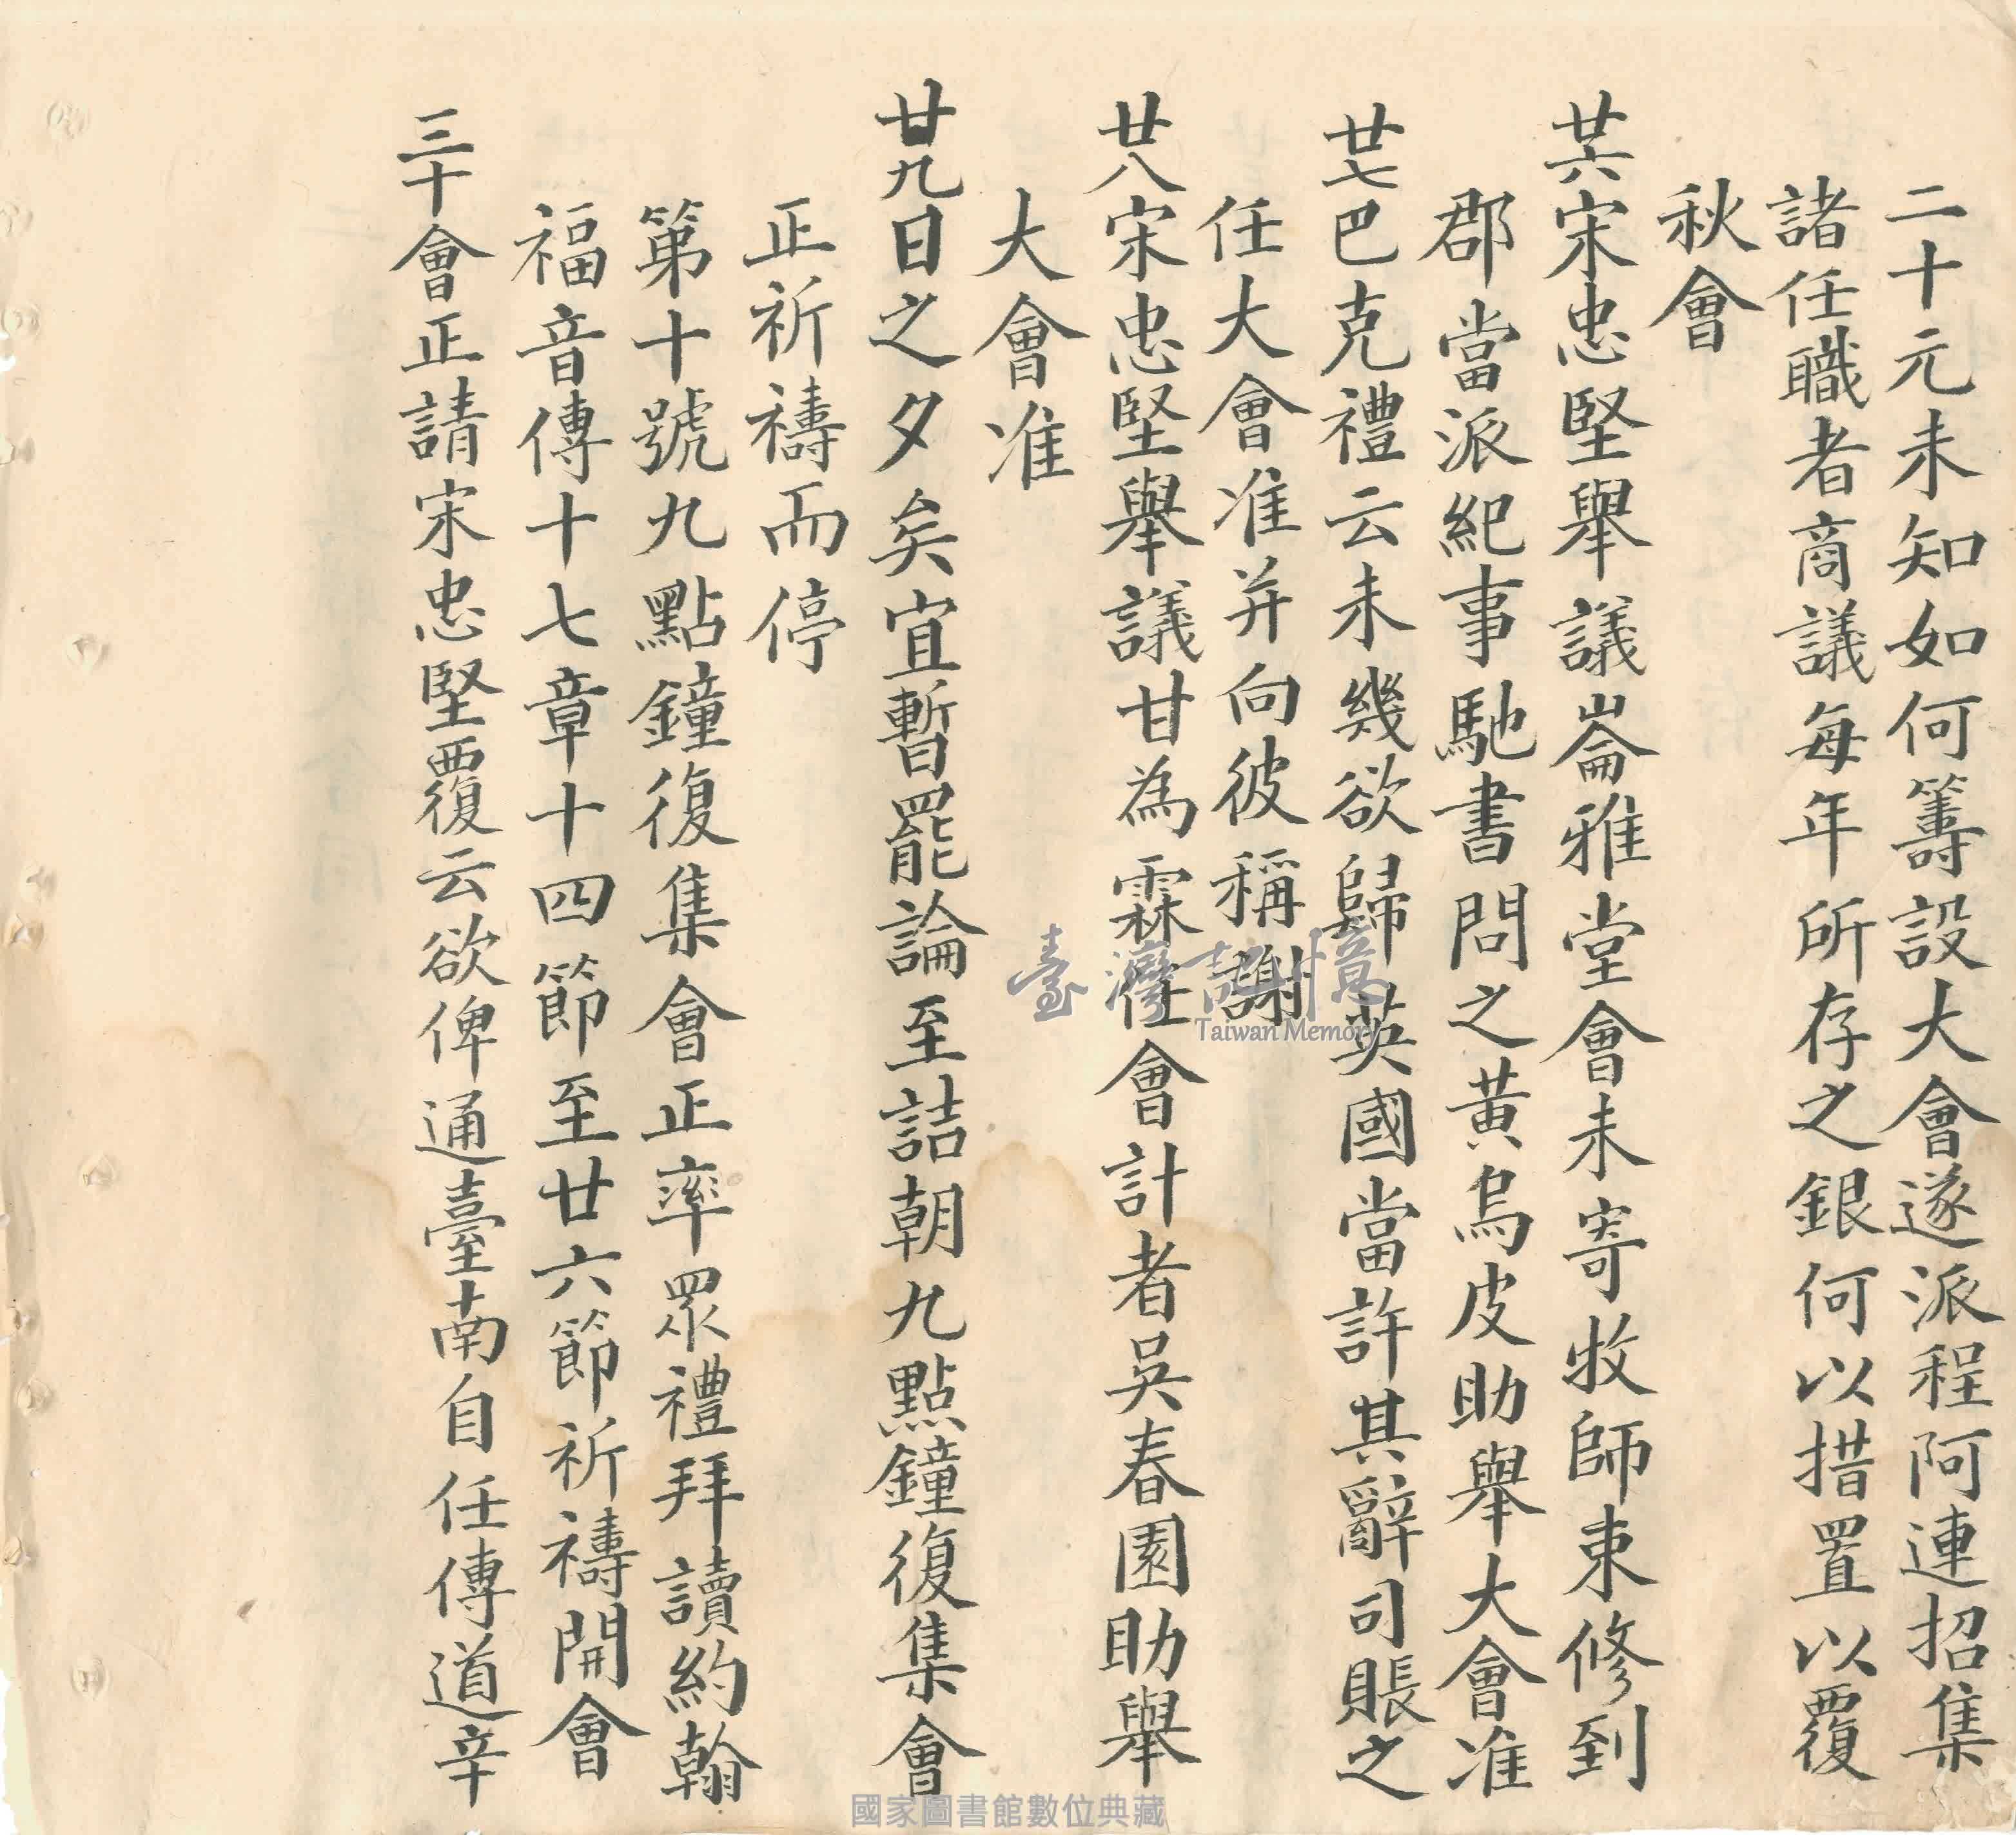 二十元未知如何籌設大會遂派程阿連招集
諸任職者商議每年所存之銀何以措置以覆
秋會
廿六宋忠堅舉議崙雅堂會未寄牧師束修到
郡當派紀事馳書問之黃烏皮助舉大會准
廿七巴克禮云未幾欲歸英國當許其辭司賬之
任大會准并向彼稱謝
廿八宋忠堅舉議甘為霖任會計者吳春園助舉
大會准
廿九日之夕矣宜暫罷論至詰朝九點鐘復集會
正祈禱而停
第十號九點鐘復集會正率眾禮拜讀約翰
福音傳十七章十四節至廿六節祈禱開會
三十會正請宋忠堅覆云欲俾通臺南自任傳道辛
臺灣記憶
Taiwan Memory
國家圖書館數位典藏